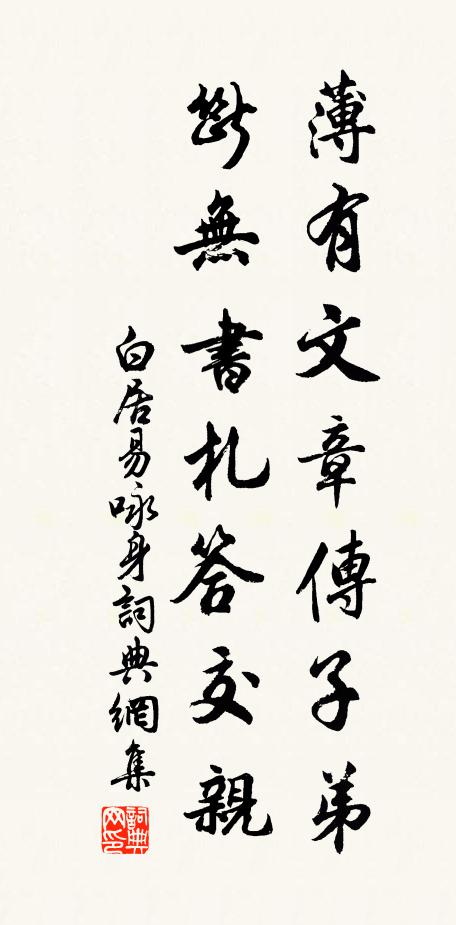 薄有文章傳子弟
斷無書札答交親
白居易咏身詞典網集
詞典網印